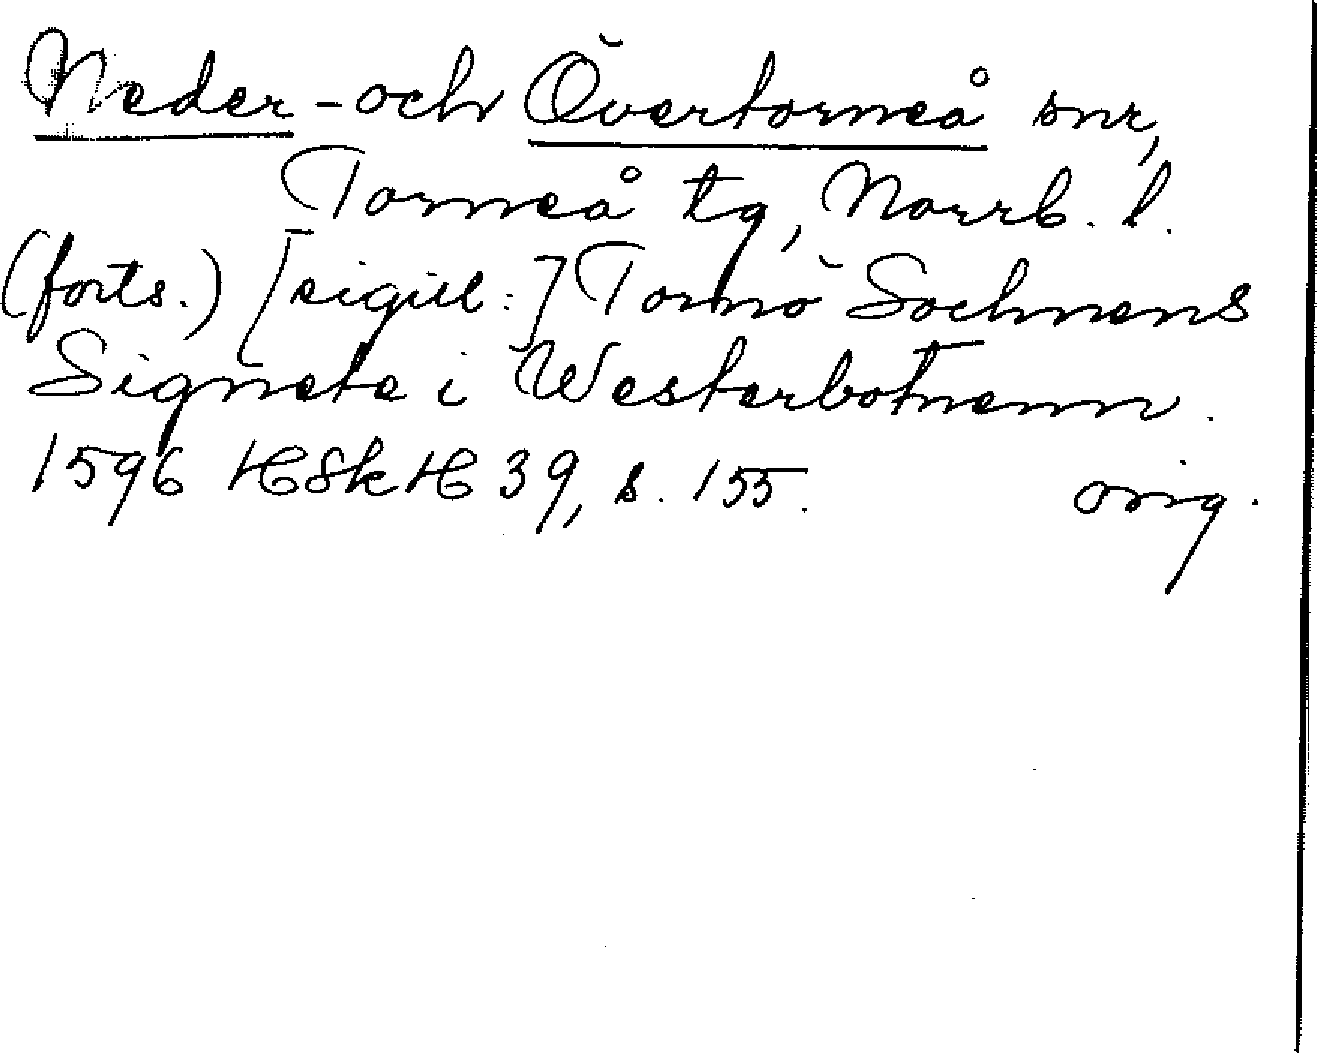 Neder- och Övertorneå snr,
Torneå tg, Norrb. l.
(forts.) [sigill:] Tornö Sochnens
Signete i Westerbotnenn.
1596 HSkH 39, s. 155. orig.